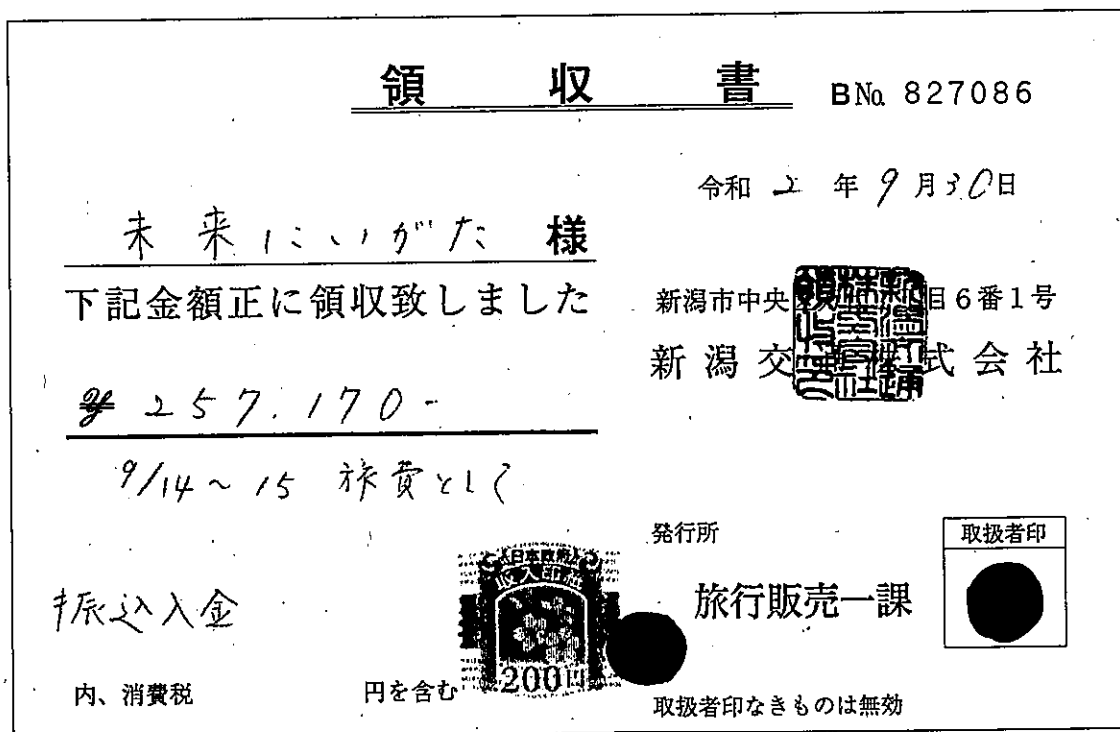 領収書 BNo. 827086
令和 2 年 9 月 30 日
未来にいがた 様
下記金額正に領収致しました
新潟市中央 目6番1号
新潟交 式会社
¥ 257.170-
9/14~15 旅費として
発行所
取扱者印
旅行販売一課
振込入金
日本政府
収入印紙
200円
内、消費税 円を含む
取扱者印なきものは無効